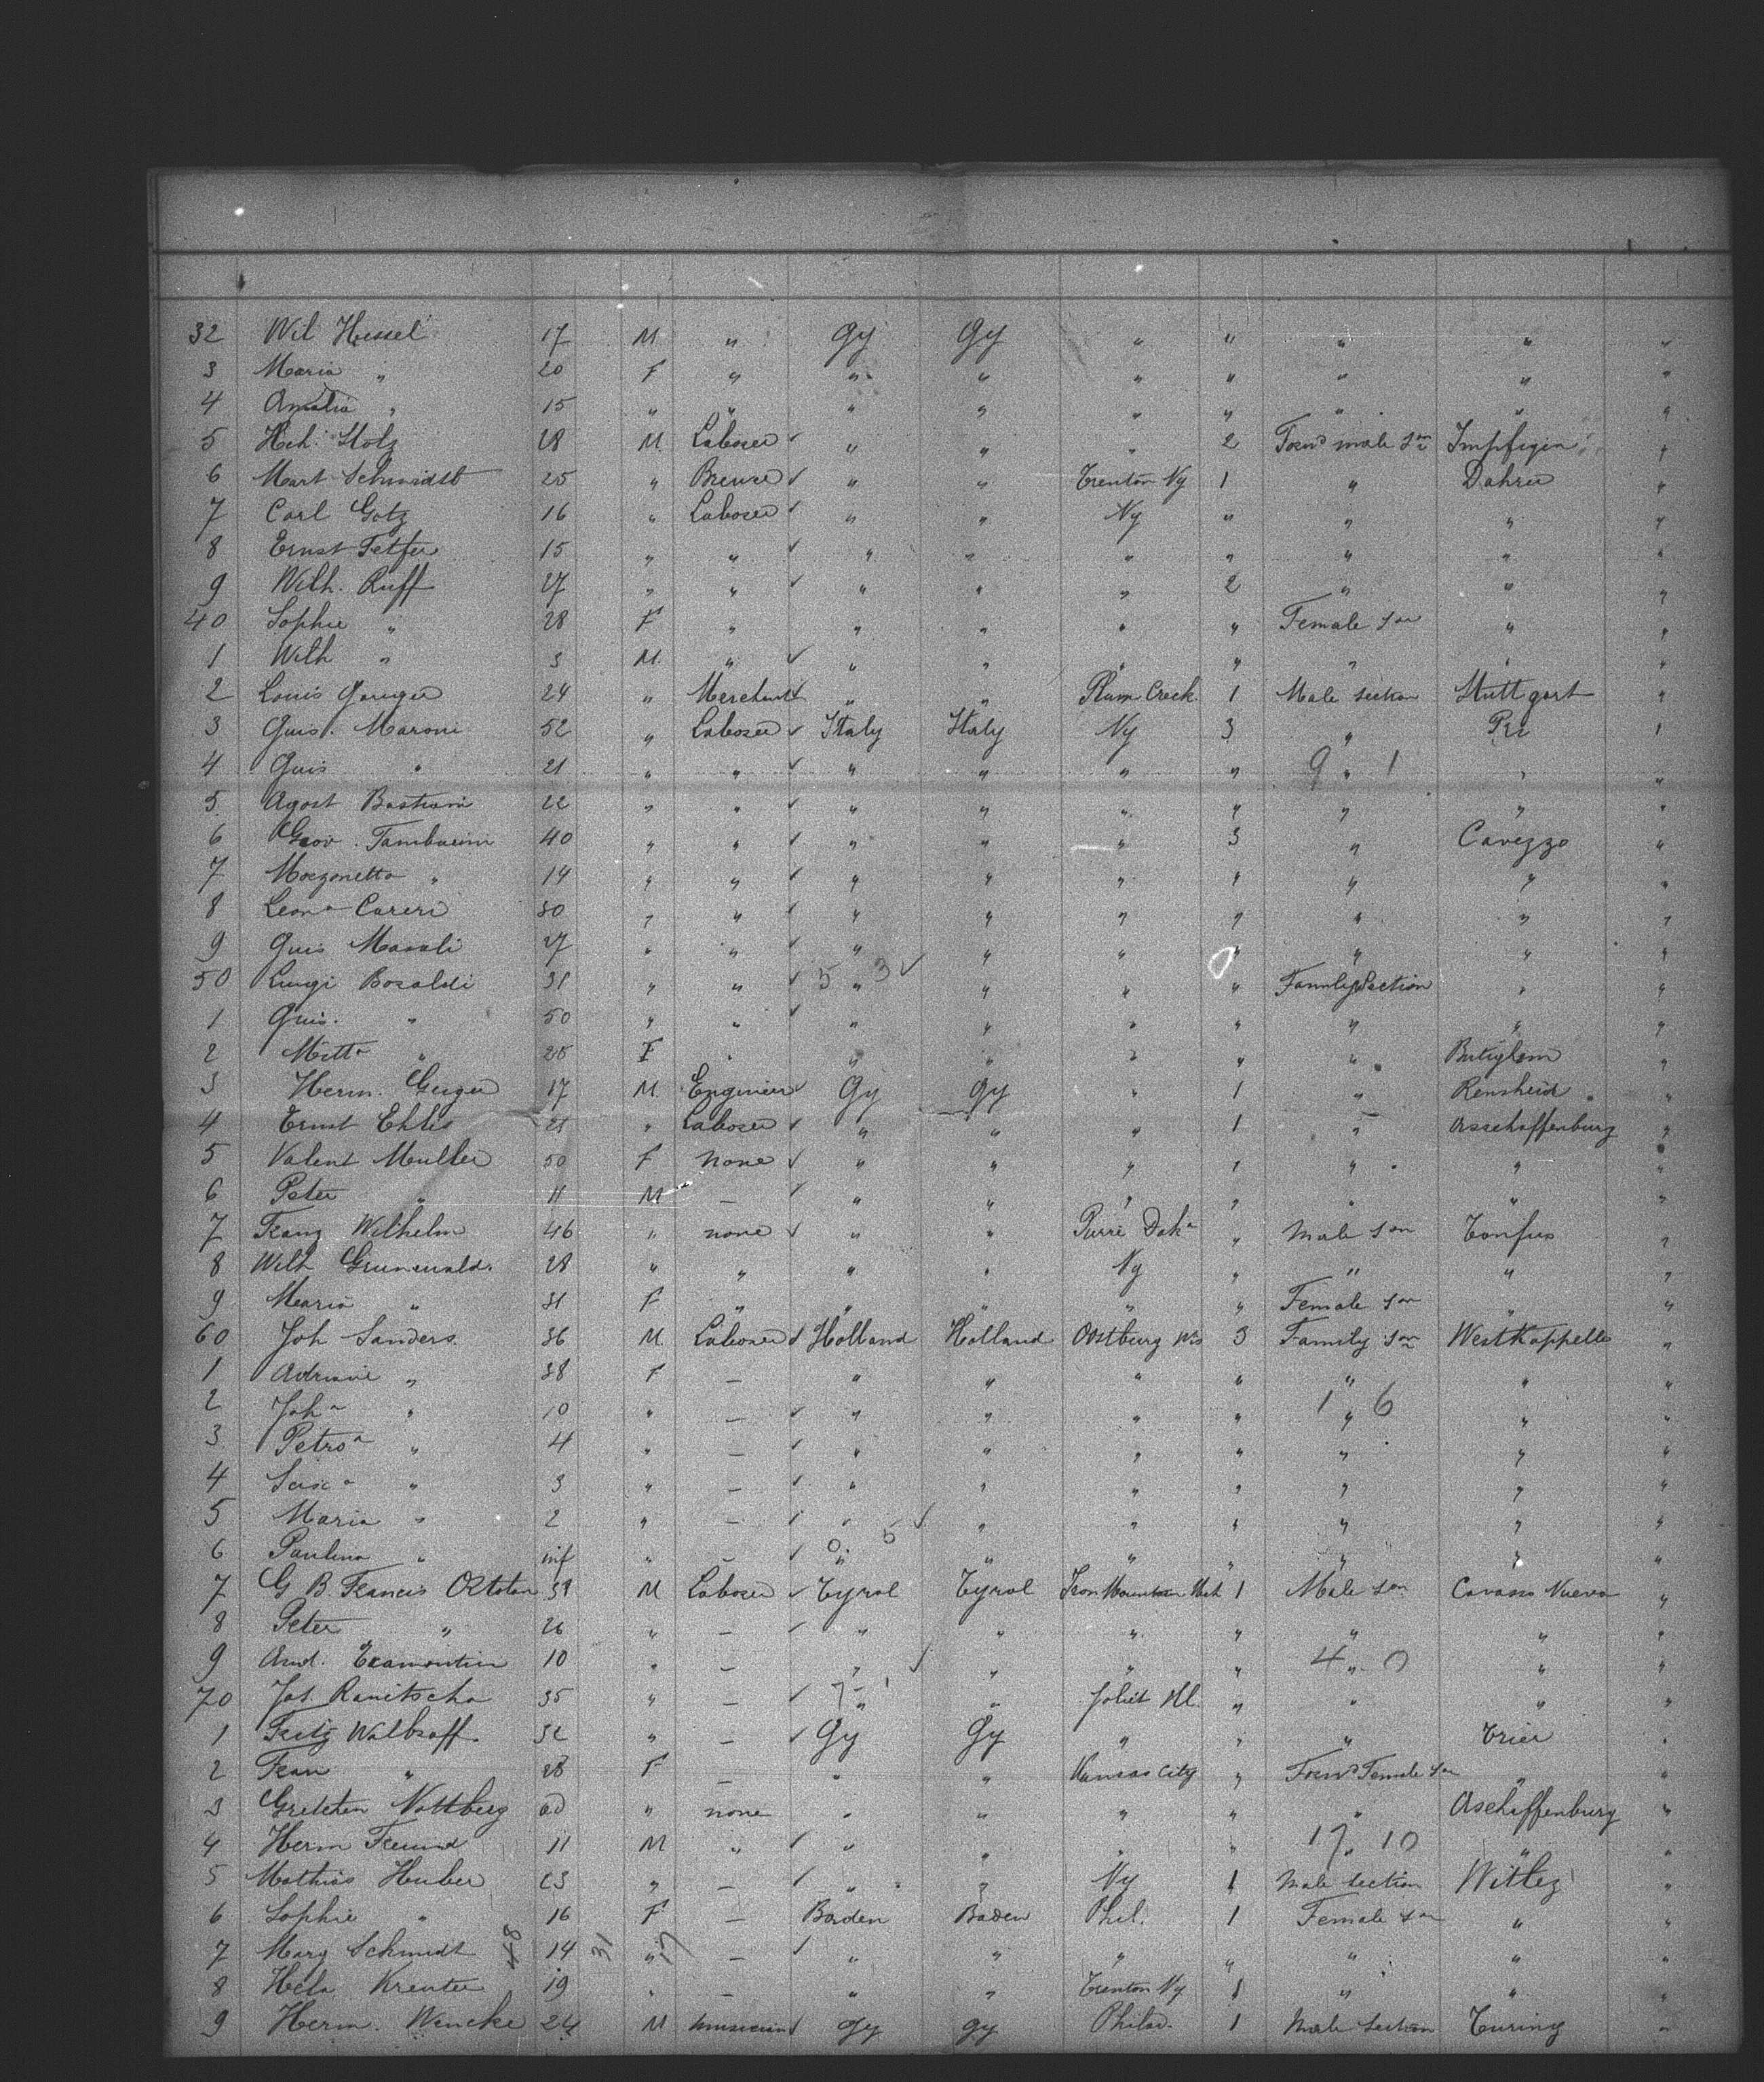 32 Wil Hessel 17 M " Gy Gy " " " " "
3 Maria " 20 F " " " " " " " "
4 Amalia " 15 " " " " " " " " "
5 Hch. Stolz 28 M. Laborer " " " 2 Forwd male Son Impfigen "
6 Mart Schmidt 25 " Brewer " " Trenton Ny 1 " Dahren "
7 Carl Gotz 16 " Laborer " " Ny " " " "
8 Ernst Fetfer 15 " " " " " " " " "
9 Wilh. Ruff 27 " " " " " 2 " " "
40 Sophie " 28 F " " " " " Female Son " "
1 Wilh " 3 M. " " " " " " " "
2 Louis 24 " Merchant " " Plum Creek 1 Male Section Stuttgart "
3 Guis. Maroni 52 " Laborer Italy Italy Ny 3 " Re 1
4 Guis " 21 " " " " " " 9 " 1 " "
5 Agost Bastiani 22 " " " " " " " " "
6 Giov. Tamburini 40 " " " " " 3 " Cavezzo "
7 Morzonetto " 14 " " " " " " " " "
8 Leona Careri 30 " " " " " " " " "
9 Guis Masali 27 " " " " " " " " "
50 Luigi Bosaldi 31 " " 5 " 3 " " " Family Section " "
1 Guis. " 50 " " " " " " " " "
2 Mitta " 25 F " " " " " " "
3 Herm. Geiger 17 M. Engineer Gy Gy " 1 " Remsheid "
4 Ernst Ehlis 21 " Laborer " " " 1 " Asschaffenburg "
5 Valent Muller 50 F None " " " " " " "
6 Peter " 11 M — " " " " " " "
7 Franz Wilhelm 46 " none " " Purre Doka " Male Son "
8 Wilh Grunewald. 28 " " " " Ny " " " "
9 Maria " 31 F " " " " " Female Son " "
60 Joh Sanders. 36 M. Laborer Holland Holland Oostburg Wis 3 Family Son Westkappelle "
1 Adriane " 38 F — " " " " " " "
2 Joha " 10 " — " " " " 1 " 6 " "
3 Petroa " 4 " — " " " " " " "
4 " 3 " — " " " " " " "
5 Maria " 2 " — " 5 " " " " " "
6 Paulina " inf " — 0 " " " " " " "
7 G B. Francis 39 M Laborer Tyrol Tyrol Iron Mountain Mich 1 Male Son Cavasso Nuevo "
8 Peter " 26 " — " " " " " " "
9 And. Tramontin 10 " — " " " " 4 " 0 " "
70 Jos. Ranitscha 35 " — 7 " 1 " Joliet Ill. " " " "
1 Fritz Walkoff. 32 " — Gy Gy " " " Trier "
2 Fran " 28 F — " " Kansas City " Forwd Female Son " "
3 Gretchen Nottberg 60 " none " " " " " Aschaffenburg "
4 Herm Freund 11 M " " " " " 17 " 10 " "
5 Mathias Huber 23 " — " " Ny 1 Male Section "
6 Sophie " 16 F — Baden Baden Phil. 1 Female Son " "
7 Mary Schmidt 48 14 31 " 17 — " " " " " " "
8 Hela Kreuter 19 " — " " Trenton Ny 1 " " "
9 Herm. Wencke 24 M musician Gy Gy Philad. 1 Male Section Turing "